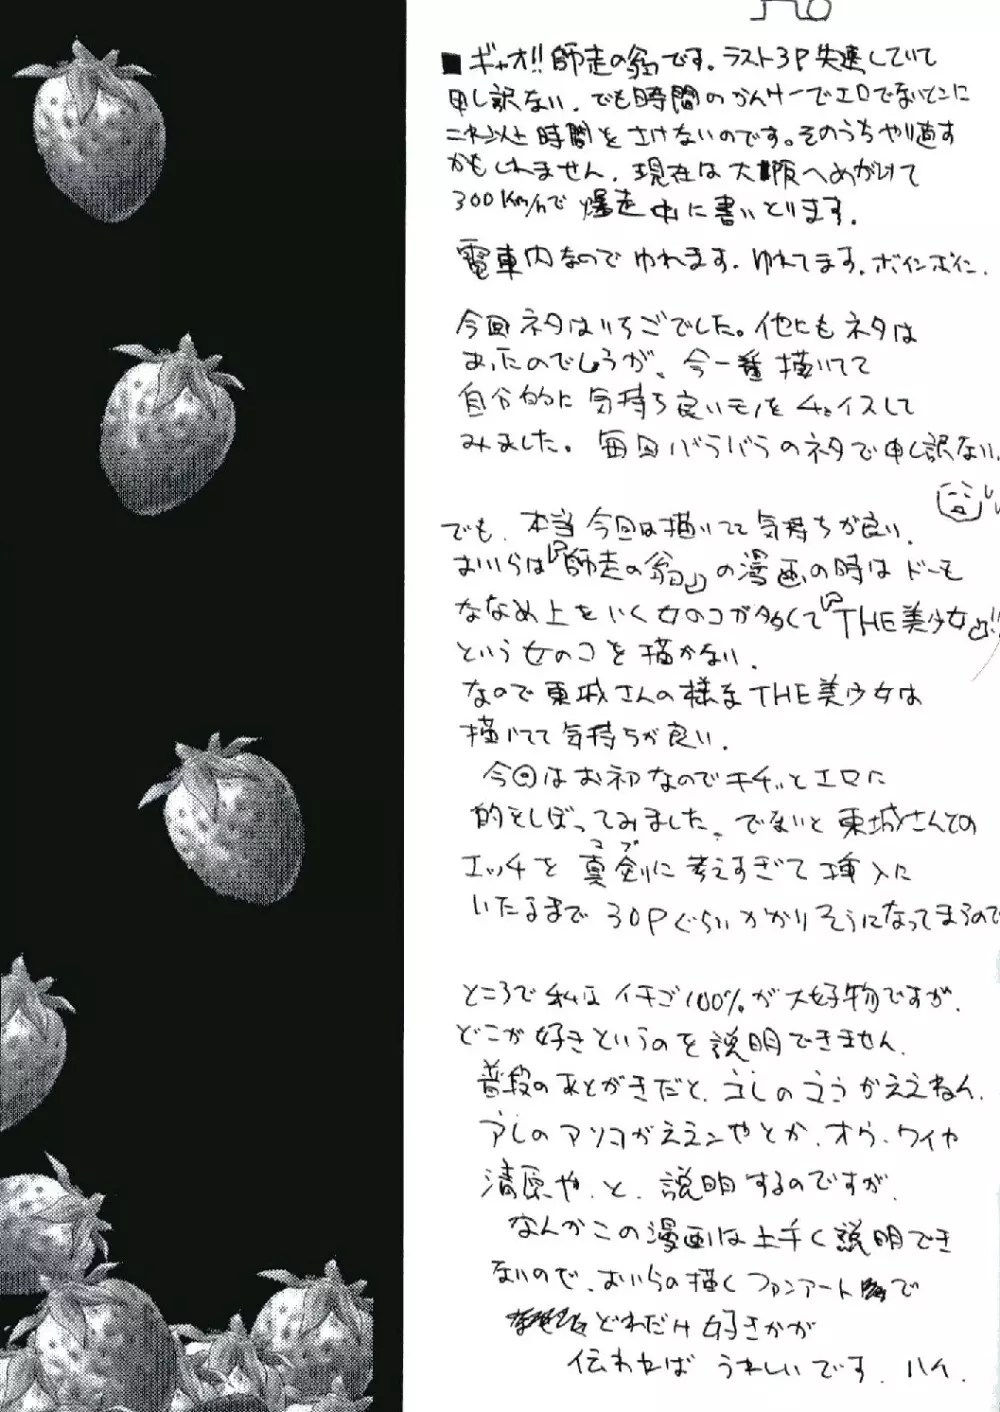 ■ギャオ!!師走の翁です。ラスト3P失速していて
申し訳ない。でも時間のかんけーでエロでないトコに
時間をさけないのです。そのうちやり直す
かもしれません。現在は大阪へめがけて
300Km/hで爆走中に書いとります。
電車内なのでゆれます。ゆれてます。ボインボイン。
今回ネタはいちごでした。他にもネタは
あったのでしょうが、今一番描いてて
自分的に気持ち良いモノをチョイスして
みました。毎回バラバラのネタで申し訳ない。
でも、本当今回は描いてて気持ちが良い。
おいらは『師走の翁』の漫画の時はドーモ
ななめ上をいく女のコが多くて『THE美少女』!!
という女のコを描かない。
なので東城さんの様なTHE美少女は
描いてて気持ちが良い。
今回はお初なのでキチッとエロに
的をしぼってみました。でないと東城さんでの
エッチを真剣に考えすぎて挿入に
いたるまで30Pぐらいかかりそうになってまうので
ところで私はイチゴ100%が大好物ですが、
どこが好きというのを説明できません。
普段のあとがきだと、コレのココがええねん。
アレのアソコがええンやとか、オウ、ワイや
清原や、と、説明するのですが、
なんかこの漫画は上手く説明でき
ないので、おいらの描くファンアートで
どれだけ好きかが
伝われば うれしいです。ハイ。